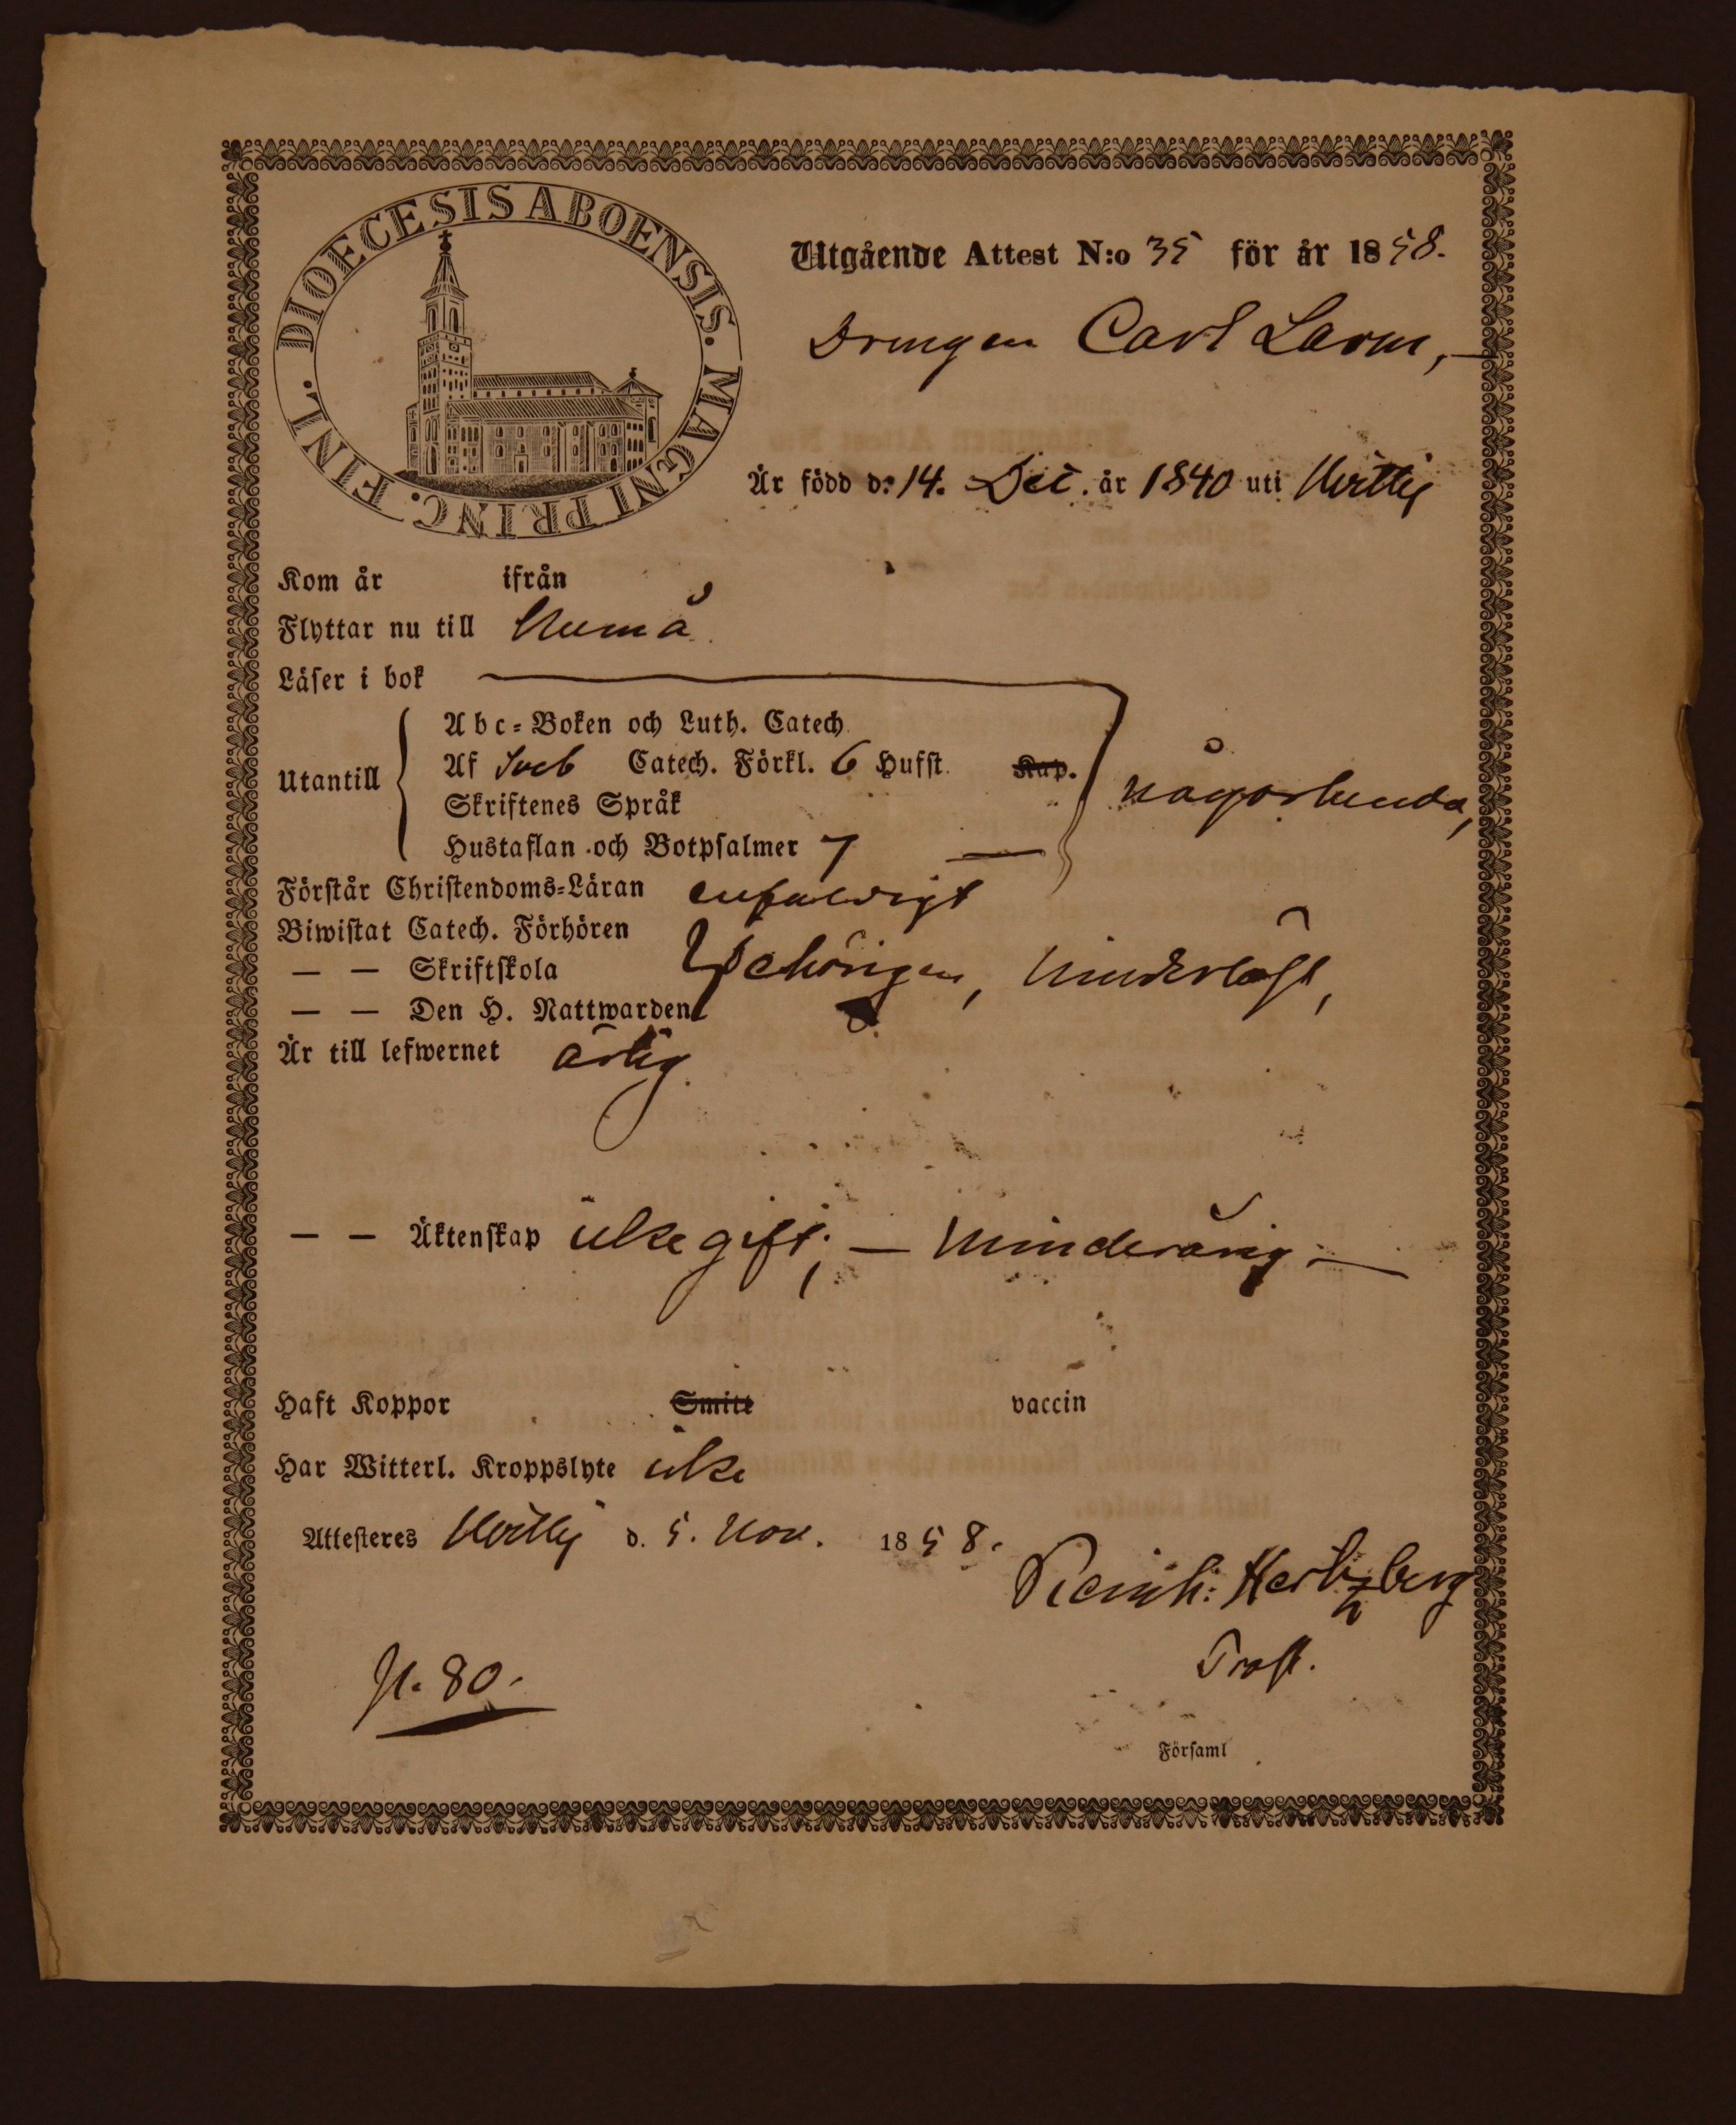 DIOECESIS ABOENSIS. MAGNI PRINC. FINL.
Utgående Attest N:o 35 för år 1858.
Drengen Carl Larm,
Är född d: 14. Dec. år 1840 uti Hvittis
Kom år ifrån
Flyttar nu till Numå
Läser i bok
Utantill
Abc-Boken och Luth. Catech.
Af Sveb Catech. Förkl. 6 Hufst. Kap.
Skriftenes Språk
Hustaflan och Botpsalmer 7
någorlunda,
Förstår Christendoms-Läran enfaldigt
Biwistat Catech. Förhören
— — Skriftskola behörigen, hinderlöst,
— — Den H. Nattwarden
Är till lefwernet ärlig
— — Äktenskap icke gift; — minderårig. —
Haft Koppor Smitt vaccin
Har Witterl. Kroppslyte icke
Attesteres Hvittis d. 5. Nov. 1858.
Reinh: Hertzberg
Prost.
p. 80.
Församl.